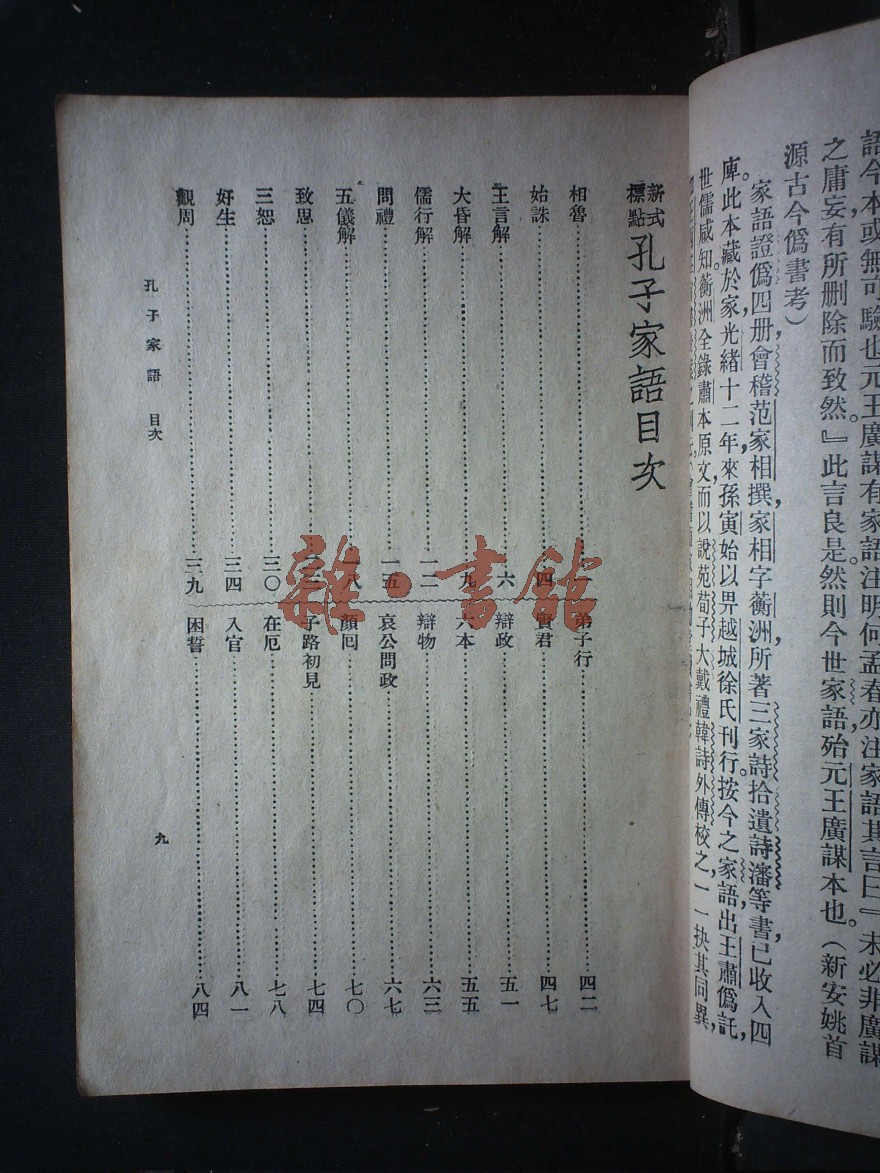 語今本或無可驗也元王廣謀有家語注明何孟春亦注家語其言曰『未必非廣謀
之庸妄,有所刪除而致然。』此言良是然則今世家語,殆元王廣謀本也。(新安姚首
源古今僞書考)
家語證僞四册,會稽范家相撰,家相字蘅洲,所著三家詩拾遺詩瀋等書,已收入四
庫。此本藏於家,光緒十二年,來孫寅始以畀越城徐氏刊行。按今之家語,出王肅僞託,
世儒咸知。蘅洲全錄肅本原文,而以說苑荀子大戴禮韓詩外傳校之,一一抉其同異,
新式標點 孔子家語目次
相魯
始誅 四
王言解 六
大昏解 九
儒行解 一二
問禮 一五
五儀解 一八
致思
三恕 三〇
好生 三四
觀周 三九
弟子行 四二
賢君 四七
辯政 五一
六本 五五
辯物 六三
哀公問政 六七
顏回 七〇
子路初見 七四
在厄 七八
入官 八一
困誓 八四
孔子家語 目次
九
雜·書館